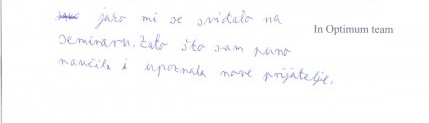 jako mi se sviđalo na
seminaru. Zato što sam puno
naučila i upoznala nove prijatelje.
In Optimum team